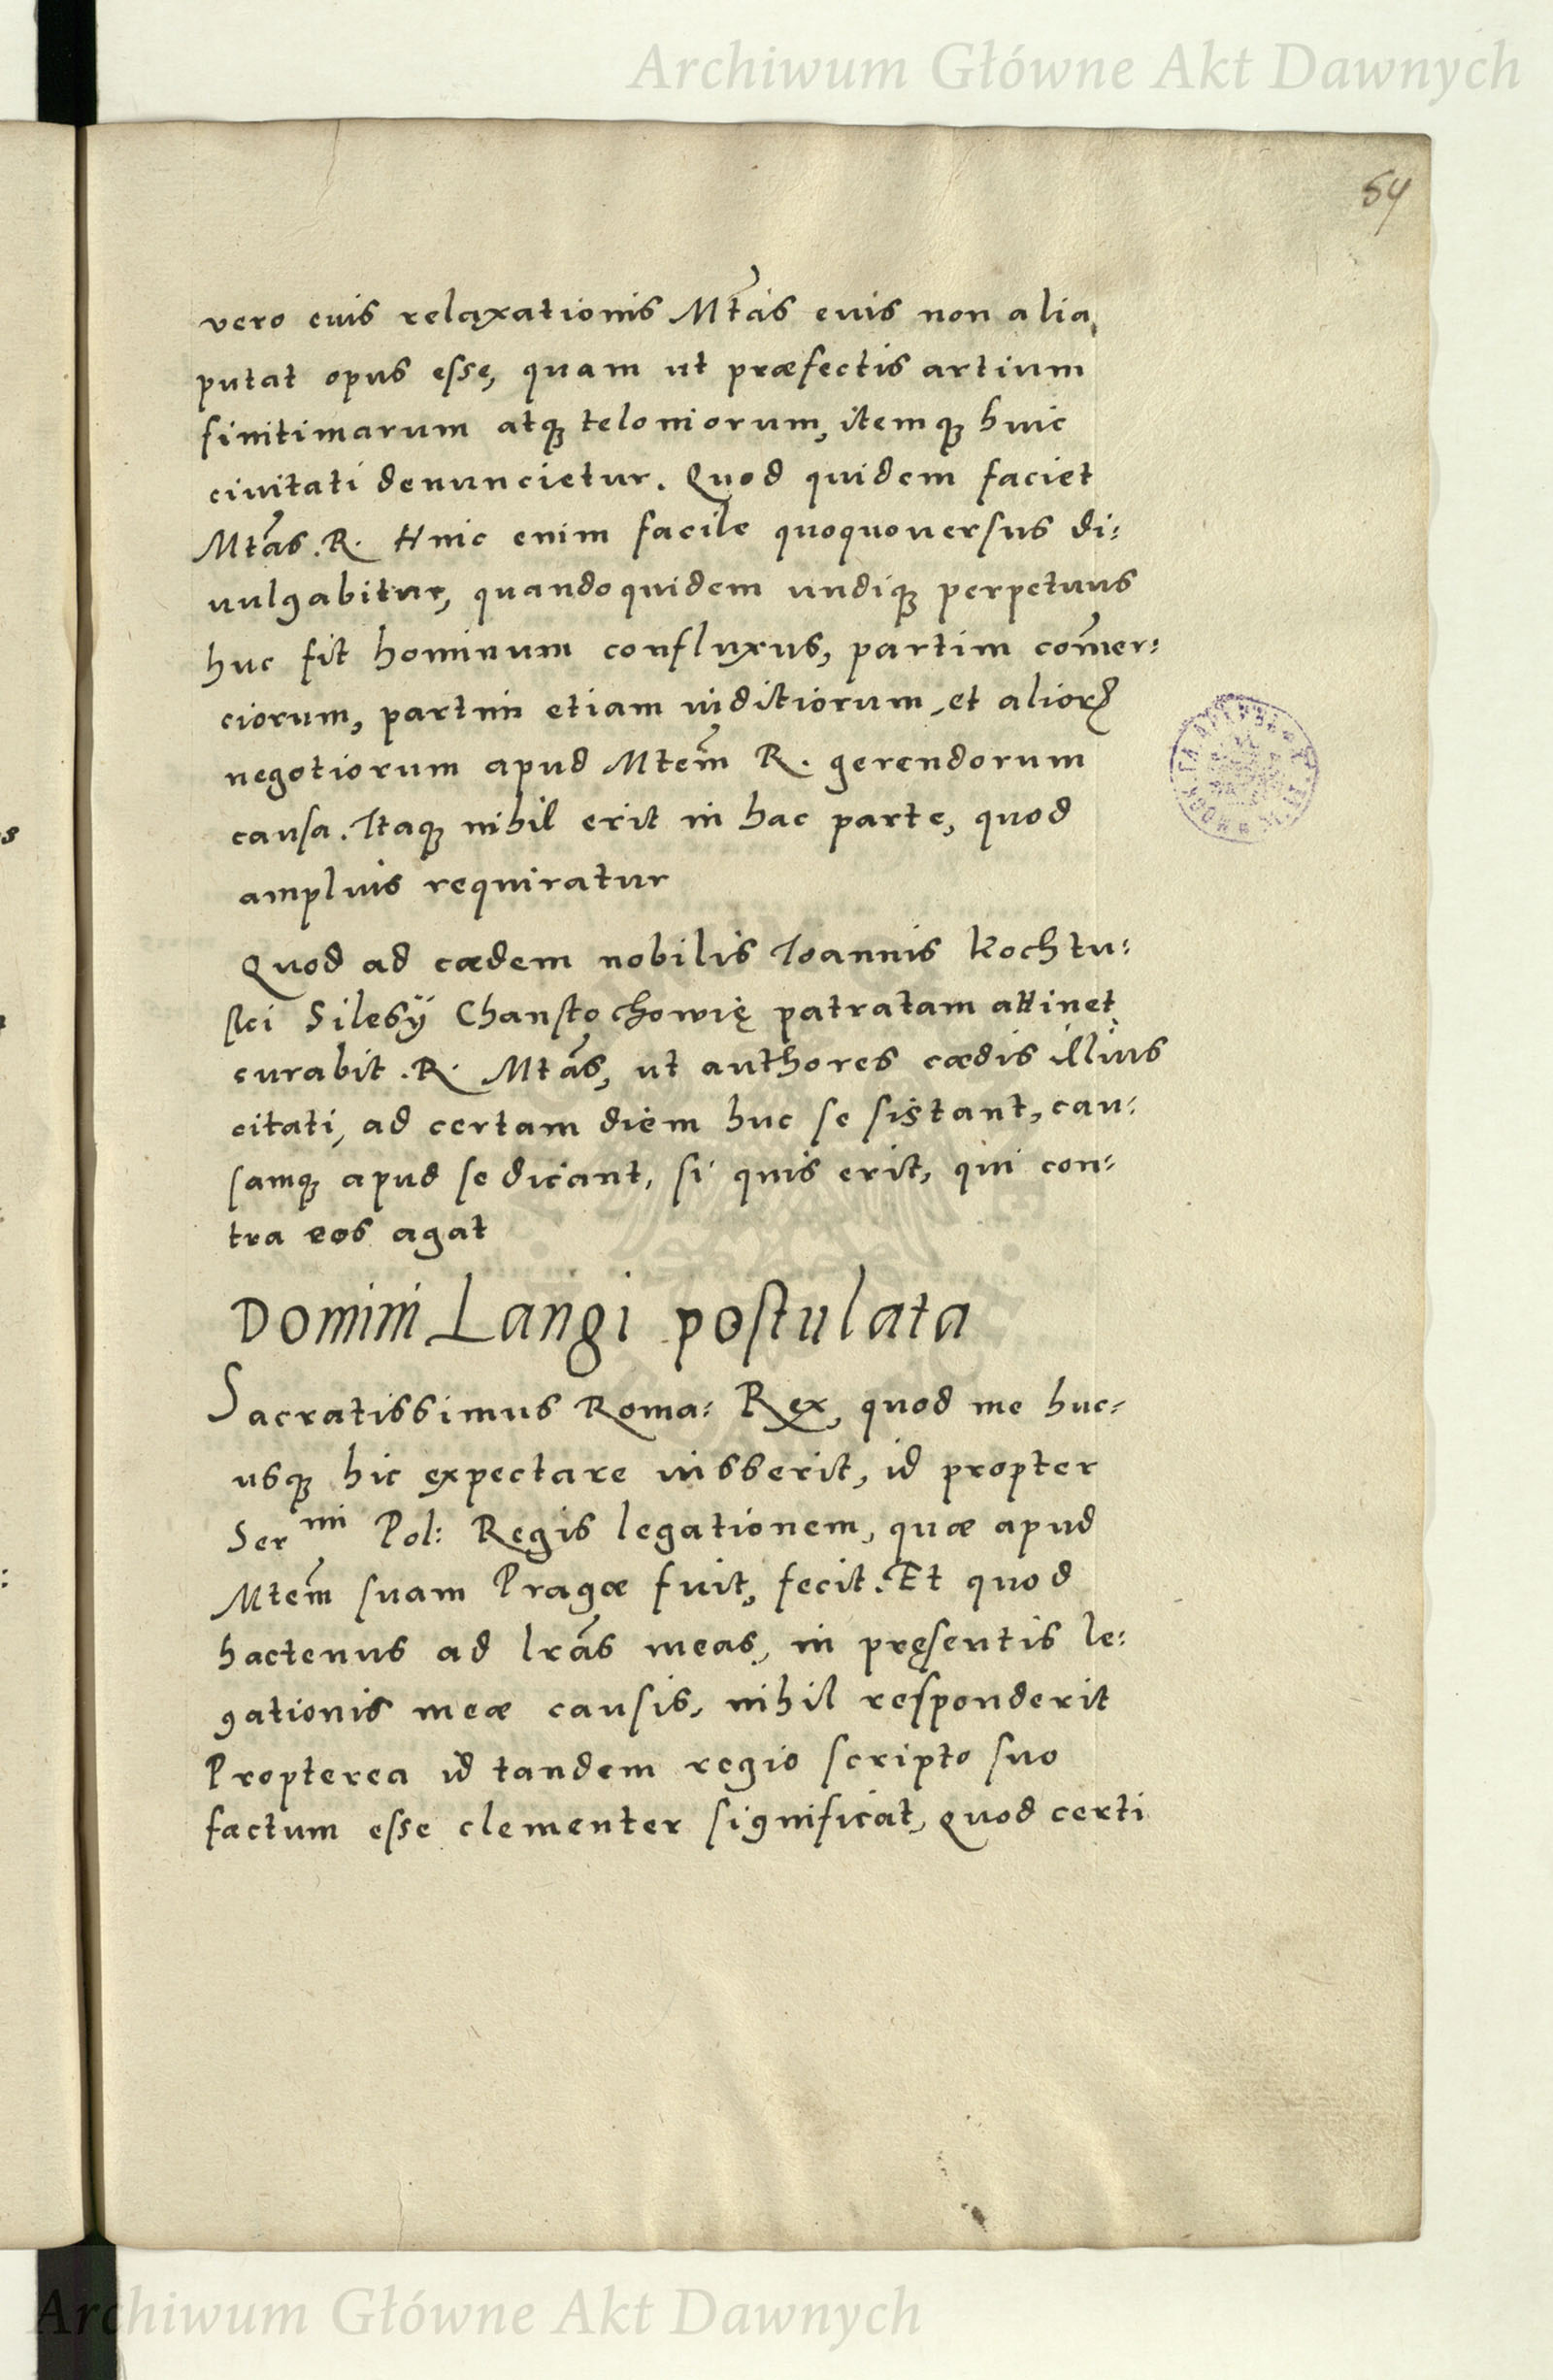 Archiwum Główne Akt Dawnych
54
vero euis relaxationis Mtãs euis non alia,
putat opus esse, quam ut præfectis artium
finitimarum atq; teloniorum, itemq; huic
ciuitati denuncietur. Quod quidem faciet
Mtãs .R. Hinc enim facile quoquouersus di:
uulgabitur, quandoquidem undiq; perpetuus
huc fit hominum confluxus, partim com̃er:
ciorum, partim etiam iuditiorum, et alioꝝ
negotiorum apud Mtem̃ R. gerendorum
causa. Itaq; nihil erit in hac parte, quod
amplius requiratur
Quod ad cædem nobilis Ioannis Kochtu:
ſci Silesÿ Chanstochowię patratam attinet
curabit .R. Mtãs, ut authores cædis illius
citati, ad certam diem huc se sistant, cau:
samq; apud se dicant, si quis erit, qui con:
tra eos agat
Domini Langi postulata
Sacratissimus Roma: Rex, quod me huc:
usq; hic expectare iusserit, id propter
Ser mi Pol: Regis legationem, quæ apud
Mtem̃ suam Pragæ fuit, fecit. Et quod
hactenus ad lrãs meas, in pręsentis le:
gationis meæ causis, nihil responderit
Propterea id tandem regio scripto suo
factum esse clementer significat, quod certi
Archiwum Główne Akt Dawnych